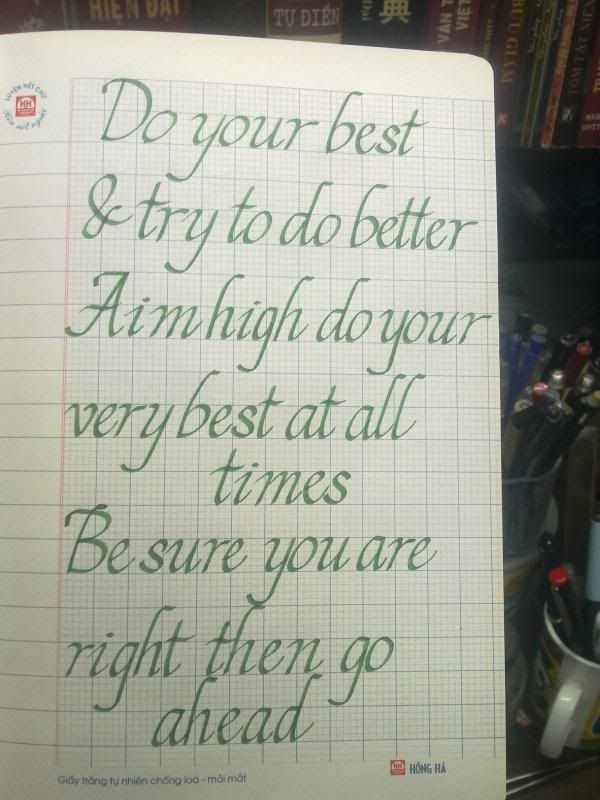 HIỆN ĐẠI
TỰ ĐIỂN
典
VĂN T
VIỆT
BỬU GIÁM
TÓM TẮT NIÊN
NXB
VHTT
LUYỆN NÉT CHỮ
HH
Rèn nết người
Do your best
& try to do better
Aim high do your
very best at all
times
Be sure you are
right then go
ahead
Giấy trắng tự nhiên chống loá - mỏi mắt
HH HỒNG HÀ